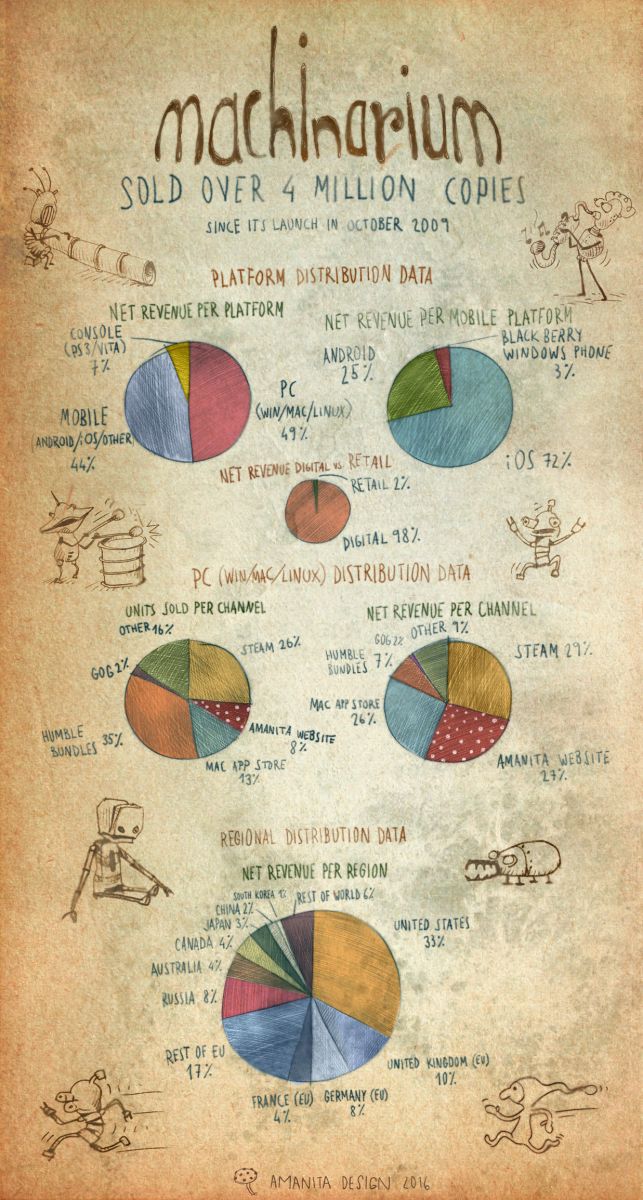 machinarium
SOLD OVER 4 MILLION COPIES
SINCE ITS LAUNCH IN OCTOBER 2009
PLATFORM DISTRIBUTION DATA
NET REVENUE PER PLATFORM
CONSOLE
(PS3/VITA)
7%
MOBILE
ANDROID/iOS/OTHER
44%
PC
(WIN/MAC/LINUX)
49%
NET REVENUE PER MOBILE PLATFORM
BLACK BERRY
WINDOWS PHONE
3%
ANDROID
25%
iOS 72%
NET REVENUE DIGITAL vs. RETAIL
RETAIL 2%
DIGITAL 98%
PC (WIN/MAC/LINUX) DISTRIBUTION DATA
UNITS SOLD PER CHANNEL
OTHER 16%
STEAM 26%
GOG 2%
HUMBLE
BUNDLES 35%
AMANITA WEBSITE
8%
MAC APP STORE
13%
NET REVENUE PER CHANNEL
OTHER 9%
GOG 2%
HUMBLE
BUNDLES 7%
STEAM 29%
MAC APP STORE
26%
AMANITA WEBSITE
27%
REGIONAL DISTRIBUTION DATA
NET REVENUE PER REGION
SOUTH KOREA 1%
REST OF WORLD 6%
CHINA 2%
JAPAN 3%
CANADA 4%
AUSTRALIA 4%
RUSSIA 8%
UNITED STATES
33%
REST OF EU
17%
UNITED KINGDOM (EU)
10%
FRANCE (EU)
4%
GERMANY (EU)
8%
AMANITA DESIGN 2016